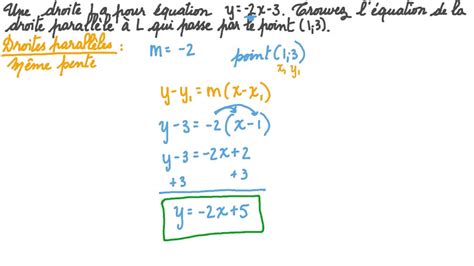 Une droite L a pour équation y=-2x-3. Trouvez l'équation de la
droite parallèle à L qui passe par le point (1;3).
Droites parallèles:
Même pente
m = -2
point (1;3)
x₁ y₁
y-y₁ = m(x-x₁)
y-3 = -2(x-1)
y-3 = -2x+2
+3 +3
y = -2x+5